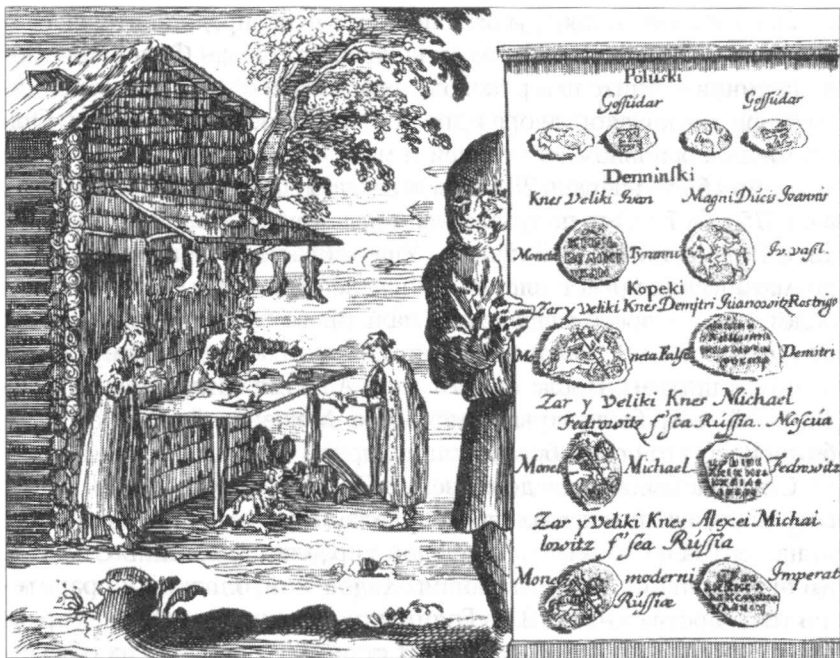 Poluski
Gossúdar Gossúdar
Denninski
Knes Veliki Ivan Magni Dúcis Ioannis
Moneta Tyranni Iv. vasil.
Kopeki
Zar y Veliki Knes Demitri Iuanowitz Rostrigo
neta Falsi Demitri
Zar y Veliki Knes Michael
Fedrowitz f'sea Rússia. Moscúa
Monet Michael Fedrowitz
Zar y Veliki Knes Alexei Michai
lowitz f'sea Rússia
Monet moderni Imperat
Rússiæ